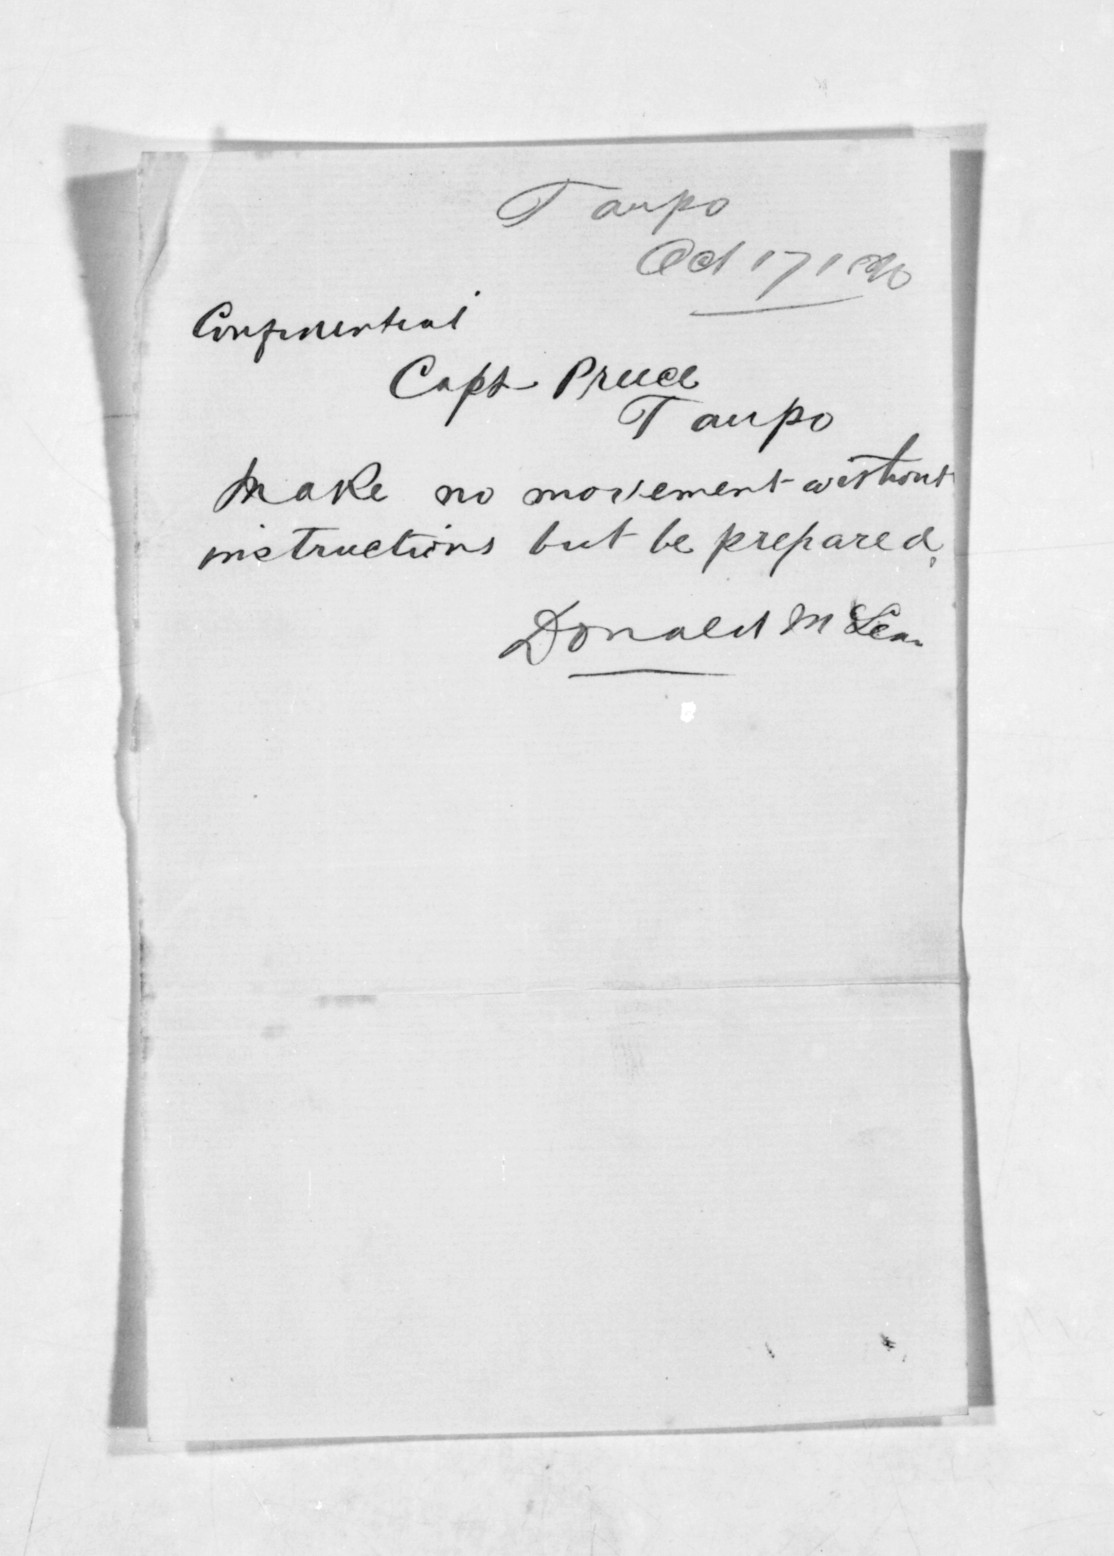 Taupo
Oct 17 1870
Confidential
Capt Preece
Taupo
Make no movement without
instructions but be prepared,
Donald McLean